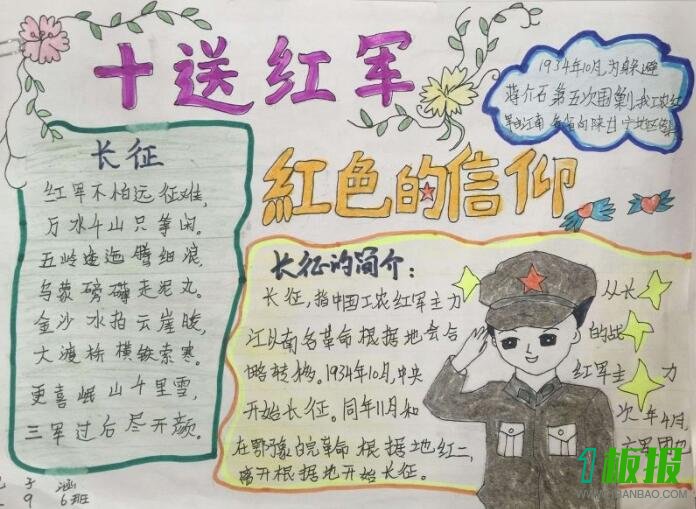 十送红军
1934年10月,为躲避
蒋介石第五次围剿,我工农红
军的江南各省向陕甘宁地区
红色的信仰
长征
红军不怕远征难,
万水千山只等闲。
五岭逶迤腾细浪,
乌蒙磅礴走泥丸。
金沙水拍云崖暖,
大渡桥横铁索寒。
更喜岷山千里雪,
三军过后尽开颜。
长征的简介:
长征,指中国工农红军主力 从长
江以南各革命根据地会合 的战
略转移。1934年10月,中央 红军主力
开始长征。同年11月和 次年4月,
在鄂豫皖革命根据地红二 六军团也
离开根据地开始长征。
子涵
9 6班
1板报
WWW.1BANBAO.COM